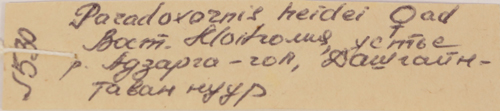 Paradoxornis heidei Qad
Вост. Монголия, устье
р. Адзарга-гол, Дашгайн-
таван нуур